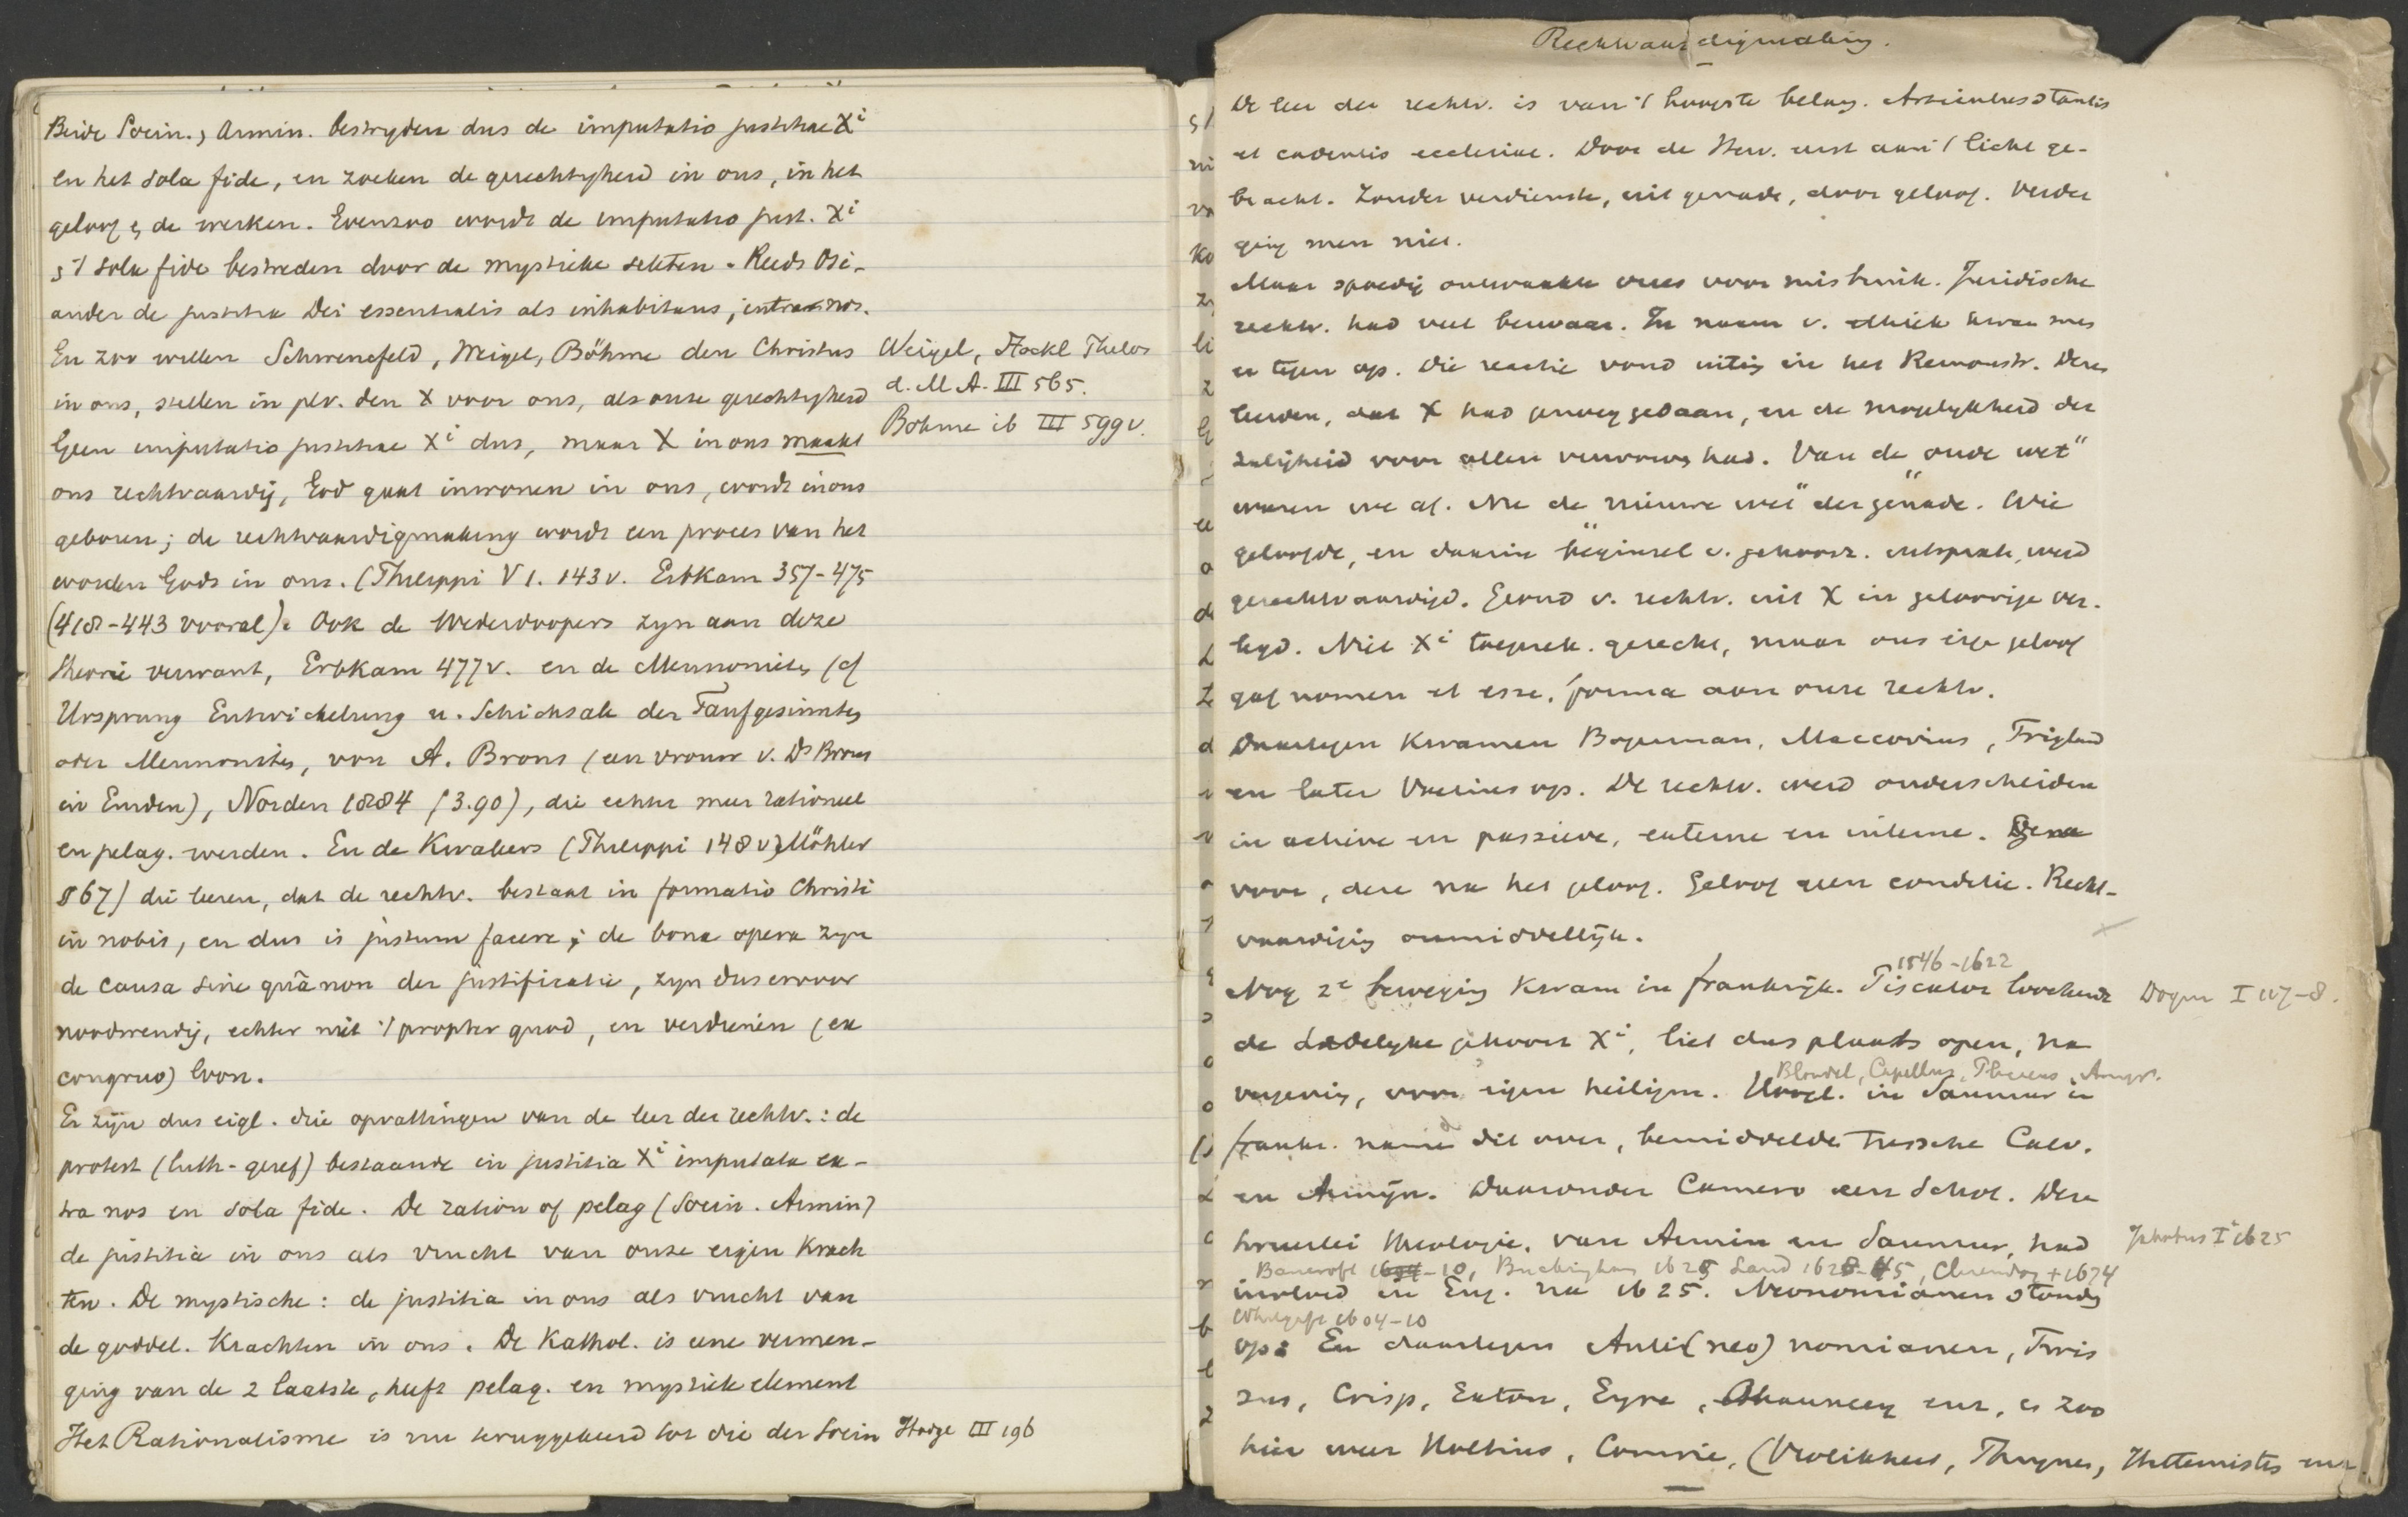 Beide Socin. & Armin. bestryden dus de imputatio justitiae Xi
en het sola fide, en zoeken de gerechtigheid in ons, in het
geloof & de werken. Evenzoo wordt de imputatio just. Xi
& 't sola fide bestreden door de mystieke sekten. Reeds Osi-
ander de justitia Dei essentialis als inhabitans, intra nos.
En zoo willen Schwencfeld, Weigel, Böhme den Christus
Weigel, Stöckl Philos
in ons, stellen in plv. den X voor ons, als onze gerechtigheid
d. M A. III 565.
Geen imputatio justitiae Xi dus, maar X in ons maakt
Böhme ib III 599 v.
ons rechtvaardig, God gaat inwonen in ons, wordt in ons
geboren; de rechtvaardigmaking wordt een proces van het
worden Gods in ons. (Philippi V 1. 143 v. Erbkam 357-475
(418-443 vooral). Ook de Wederdoopers zyn aan deze
theorie verwant, Erbkam 477 v. en de Mennonites (cf
Ursprung Entwickelung u. Schicksale der Taufgesinnten
oder Mennoniten, von A. Brons (een vrouw v. Ds Brons
in Emden), Norden 1884 (3.90), die echter meer rationeel
en pelag. werden. En de Kwakers (Philippi 148 v) Möhler
867) die leeren, dat de rechtv. bestaat in formatio Christi
in nobis, en dus is justum facere; de bona opera zyn
de causa sine quâ non der justificatie, zyn dus ervoor
noodwendig, echter niet 't propter quod, en verdienen (ex
congruo) loon.
Er zijn dus eigl. drie opvattingen van de leer der rechtv.: de
protest (luth-geref) bestaande in justitia Xi imputata ex-
tra nos en sola fide. De ration of pelag (Socin. Armin)
de justitia in ons als vrucht van onze eigen krach
ten. De mystische: de justitia in ons als vrucht van
de goddel. Krachten in ons. De Kathol. is eene vermen-
ging van de 2 laatste, heeft pelag. en mystiek element
Het Rationalisme is nu teruggekeerd tot die der Socin
Hodge III 196
Rechtvaardigmaking.
De leer der rechtv. is van 't hoogste belang. Articulus stantis
et cadentis ecclesiae. Door de Herv. eerst aan 't licht ge-
bracht. Zonder verdienste, uit genade, door geloof. Verder
ging men niet.
Maar spoedig ontwaakte vrees voor misbruik. Juridische
rechtv. had veel bezwaar. In naam v. ethiek kwam men
er tegen op. Die reactie vond uiting in het Remonstr. Deze
leerden, dat X had genoeg gedaan, en de mogelykheid der
zaligheid voor allen verworven had. Van de "oude wet"
waren we af. Nu de "nieuwe wet" der genade. Wie
geloofde, en daarin beginsel v. gehoorz. uitsprak, werd
gerechtvaardigd. Grond v. rechtv. uit X in geloovige ver-
legd. Niet Xi toegerek. gerecht, maar ons eige geloof
gaf nomen et esse, forma aan onze rechtv.
Daartegen kwamen Bogerman, Maccovius, Trigland
en later Voetius op. De rechtv. werd onderscheiden
in actieve en passieve, externe en interne. Gene
voor, deze na het geloof. Geloof geen conditie. Recht-
vaardiging onmiddellijk.
1546-1622
Nog 2e beweging kwam in Frankrijk. Piscator loochende
de dadelyke gehoorz Xi, liet dus plaats open, na
Blondel, Capellus, Placaeus, Amyr.
vergeving, voor eigen heiligm. Hoogl. in Saumur in
Frankr. namen dit over, bemiddelde tussche Calv.
en Armijn. Daaronder Camero een Schot. Deze
tweeerlei theologie, van Armin en Saumur, had
Jakobus I 1625
Bancroft -10, Buckingham 1628 Laud 1628-45, Clarendon +1674
invloed in Eng. na 1625. Neonomianen stonden
1604-10
op: En daartegen Anti(neo)nomianen, Twis
sus, Crisp, Eaton, Eyre, Chauncey enz, en zoo
hier weer Holtius, Comrie, (Vrolikhert, Thuynen, Hattemisten enz.